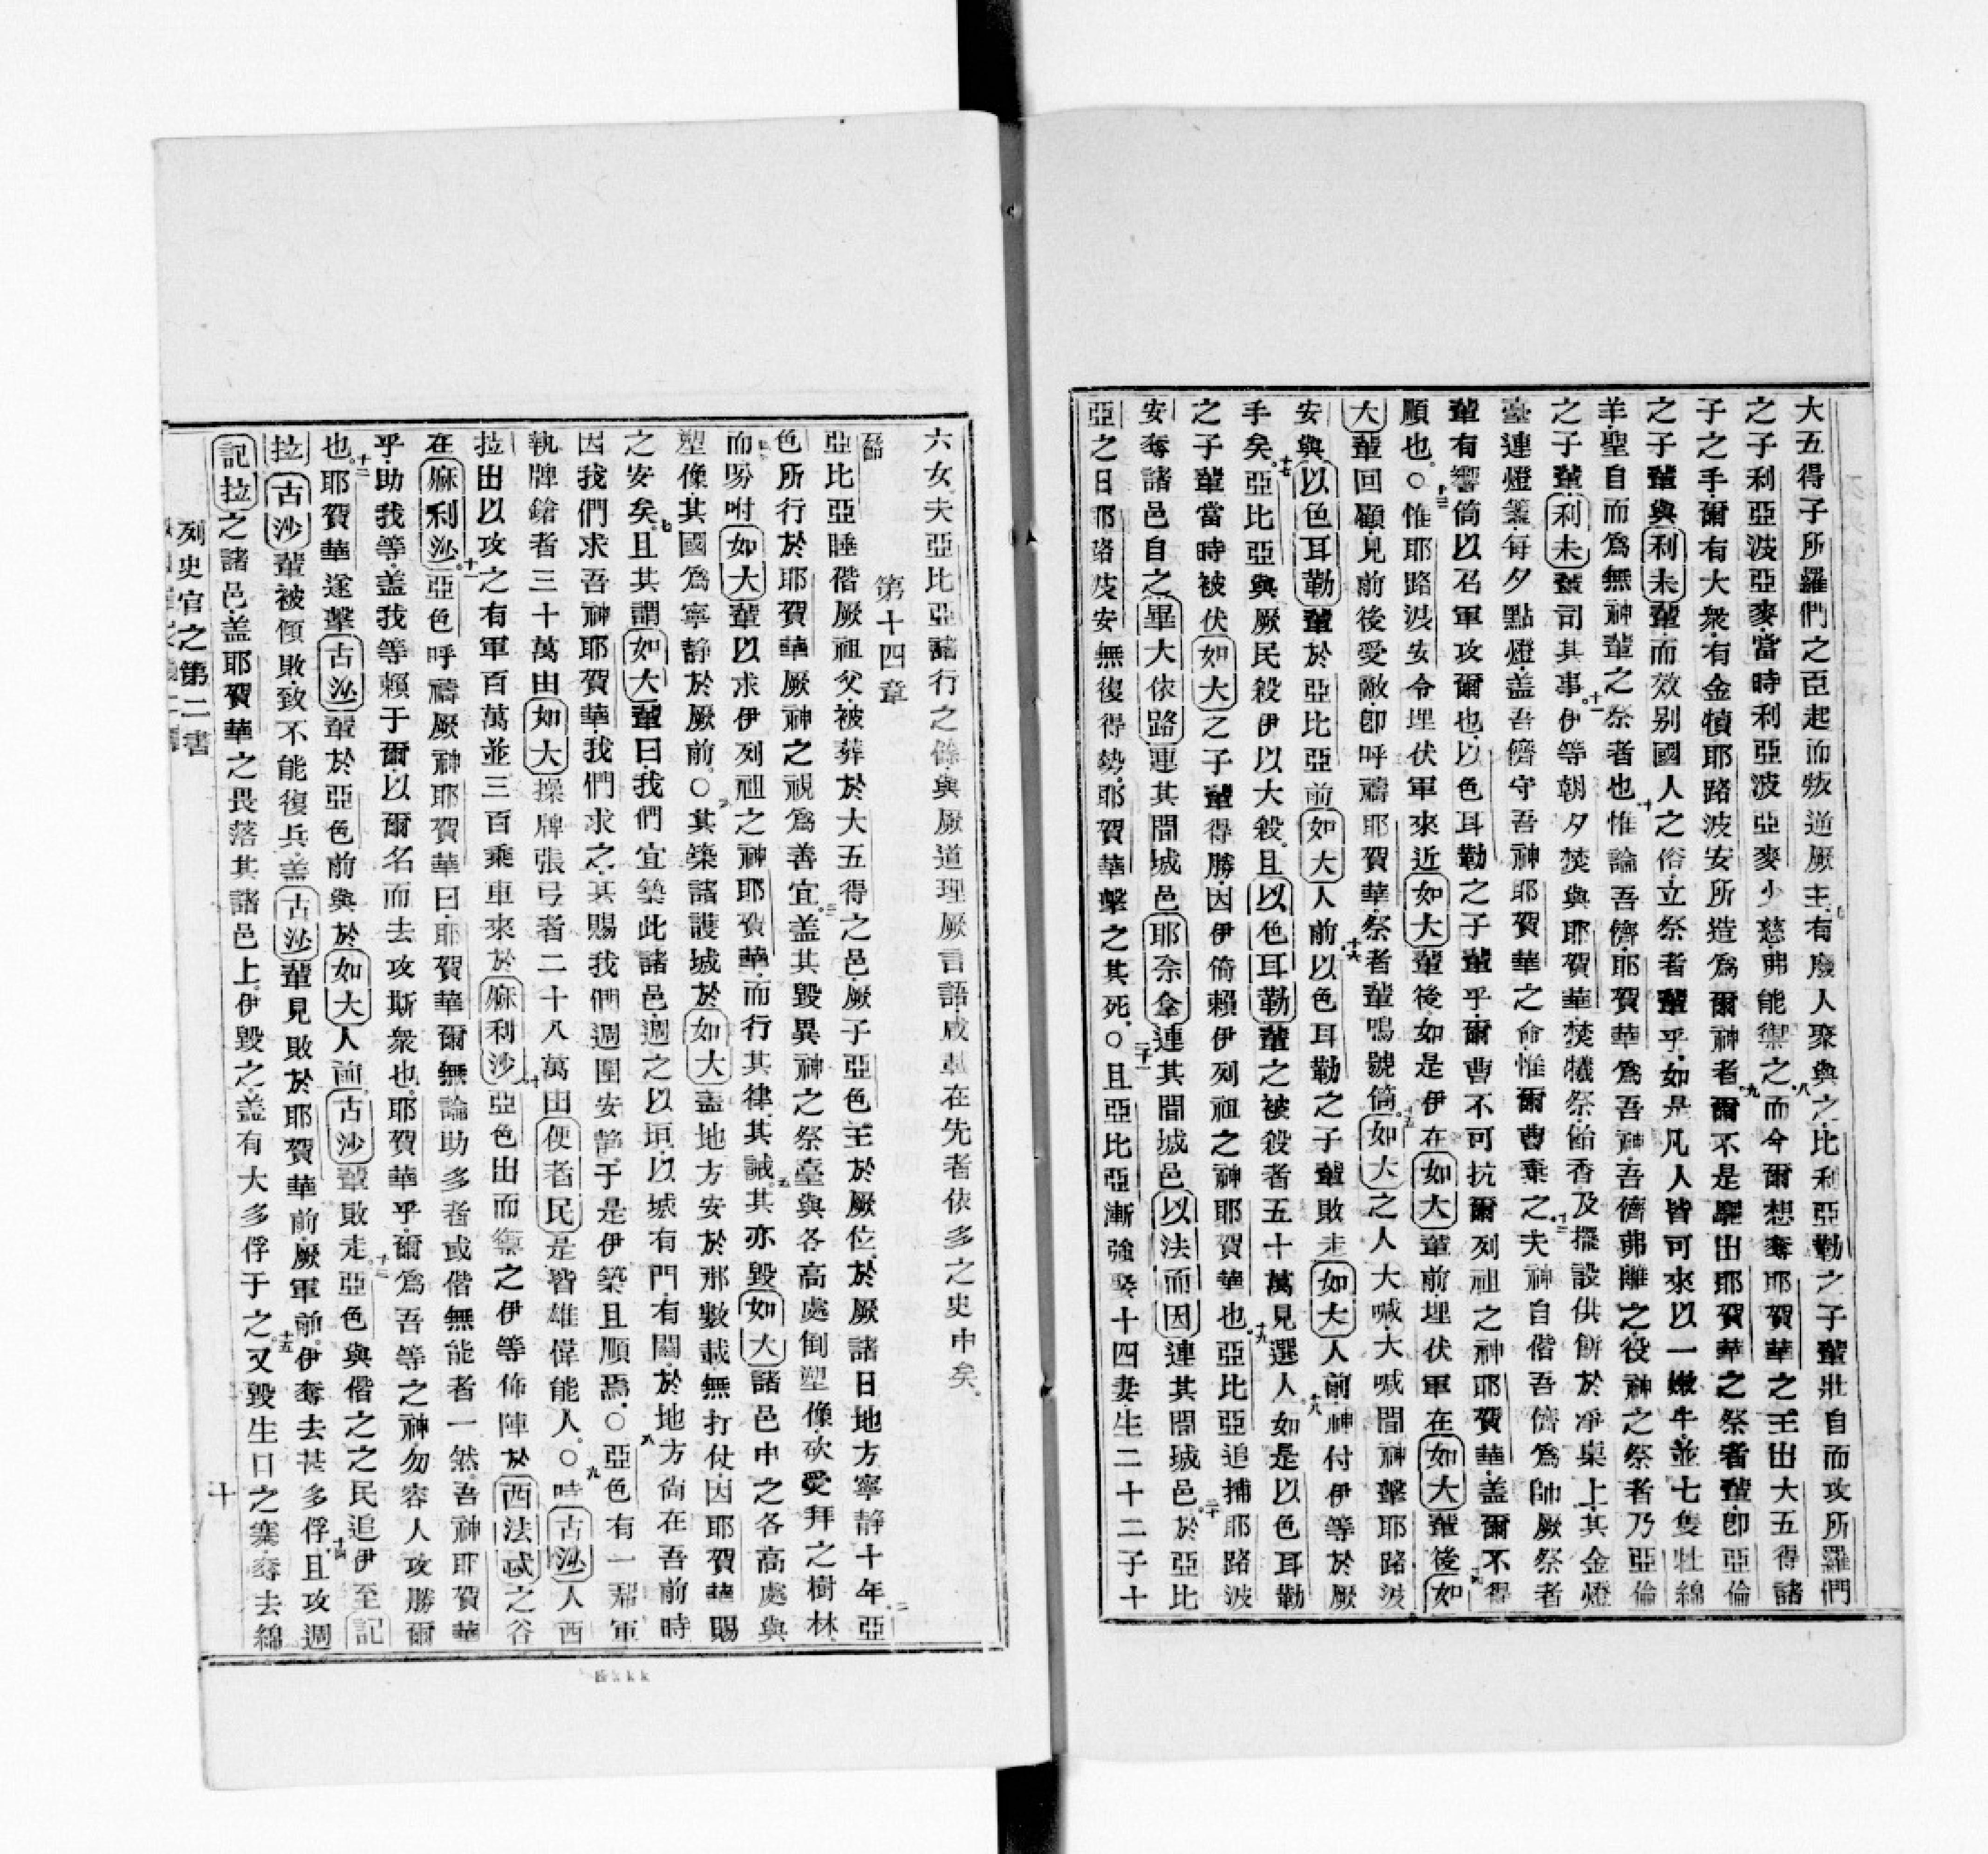 大五得子所羅們之臣起而叛逆厥主七有廢人聚與之比利亞勒之子輩壯自而攻所羅們
之子利亞波亞麥當時利亞波亞麥少慈弗能禦之八而今爾想奪耶賀華之王出大五得諸
子之手爾有大衆有金犢耶路波安所造為爾神者九爾不是驅出耶賀華之祭者輩卽亞倫
之子輩與利未輩而效别國人之俗立祭者輩乎如是凡人皆可來以一嫩牛並七隻牡綿
羊聖自而為無神輩之祭者也十惟論吾儕耶賀華為吾神吾儕弗離之役神之祭者乃亞倫
之子輩利未輩司其事十一伊等朝夕焚與耶賀華焚犧祭飴香及擺設供餅於凈棹上其金燈
臺連燈盞每夕點燈盖吾儕守吾神耶賀華之命惟爾曹棄之十二夫神自偕吾儕為帥厥祭者
輩有響筒以召軍攻爾也以色耳勒之子輩乎爾曹不可抗爾列祖之神耶賀華盖爾不得
順也○十三惟耶路波安令埋伏軍來近如大輩後如是伊在如大輩前埋伏軍在如大輩後十四如
大輩回顧見前後受敵卽呼禱耶賀華祭者輩鳴號筒十五如大之人大喊大喊間神擊耶路波
安與以色耳勒輩於亞比亞前如大人前十六以色耳勒之子輩敗走如大人前神付伊等於厥
手矣十七亞比亞與厥民殺伊以大殺且以色耳勒輩之被殺者五十萬見選人十八如是以色耳勒
之子輩當時被伏如大之子輩得勝因伊倚賴伊列祖之神耶賀華也十九亞比亞追捕耶路波
安奪諸邑自之畢大依路連其間城邑耶佘拿連其間城邑以法而因連其間城邑二十於亞比
亞之日耶路波安無復得勢耶賀華擊之其死○二十一且亞比亞漸強娶十四妻生二十二子十
六女夫亞比亞諸行之餘與厥道理厥言語咸載在先者依多之史中矣
第十四章
一節亞比亞睡偕厥祖父被葬於大五得之邑厥子亞色王於厥位於厥諸日地方寧静十年二亞
色所行於耶賀華厥神之視為善宜三盖其毀異神之祭臺與各高處倒塑像砍愛拜之樹林
四而吩咐如大輩以求伊列祖之神耶賀華而行其律其誡五其亦毀如大諸邑中之各高處與
塑像其國為寧静於厥前○六其築諸護城於如大盖地方安於那數載無打仗因耶賀華賜
之安矣七且其謂如大輩曰我們宜築此諸邑週之以垣以城有門有關於地方尚在吾前時
因我們求吾神耶賀華我們求之其賜我們週圍安静于是伊築且順焉○八亞色有一羣軍
執牌鎗者三十萬由如大操牌張弓者二十八萬由便者民是皆雄偉能人○九時古沙人西
拉出以攻之有軍百萬並三百乘車來於麻利沙十亞色出而禦之伊等佈陣於西法忒之谷
在麻利沙十一亞色呼禱厥神耶賀華曰耶賀華爾無論助多者或偕無能者一然吾神耶賀華
乎助我等盖我等賴于爾以爾名而去攻斯衆也耶賀華乎爾為吾等之神勿容人攻勝爾
也十二耶賀華遂擊古沙輩於亞色前與於如大人前古沙輩敗走十三亞色與偕之之民追伊至記
拉古沙輩被傾敗致不能復兵盖古沙輩見敗於耶賀華前厥軍前伊奪去甚多俘十四且攻週
記拉之諸邑盖耶賀華之畏落其諸邑上伊毀之盖有大多俘于之十五又毀生口之寨奪去綿
列史官之第二書
十